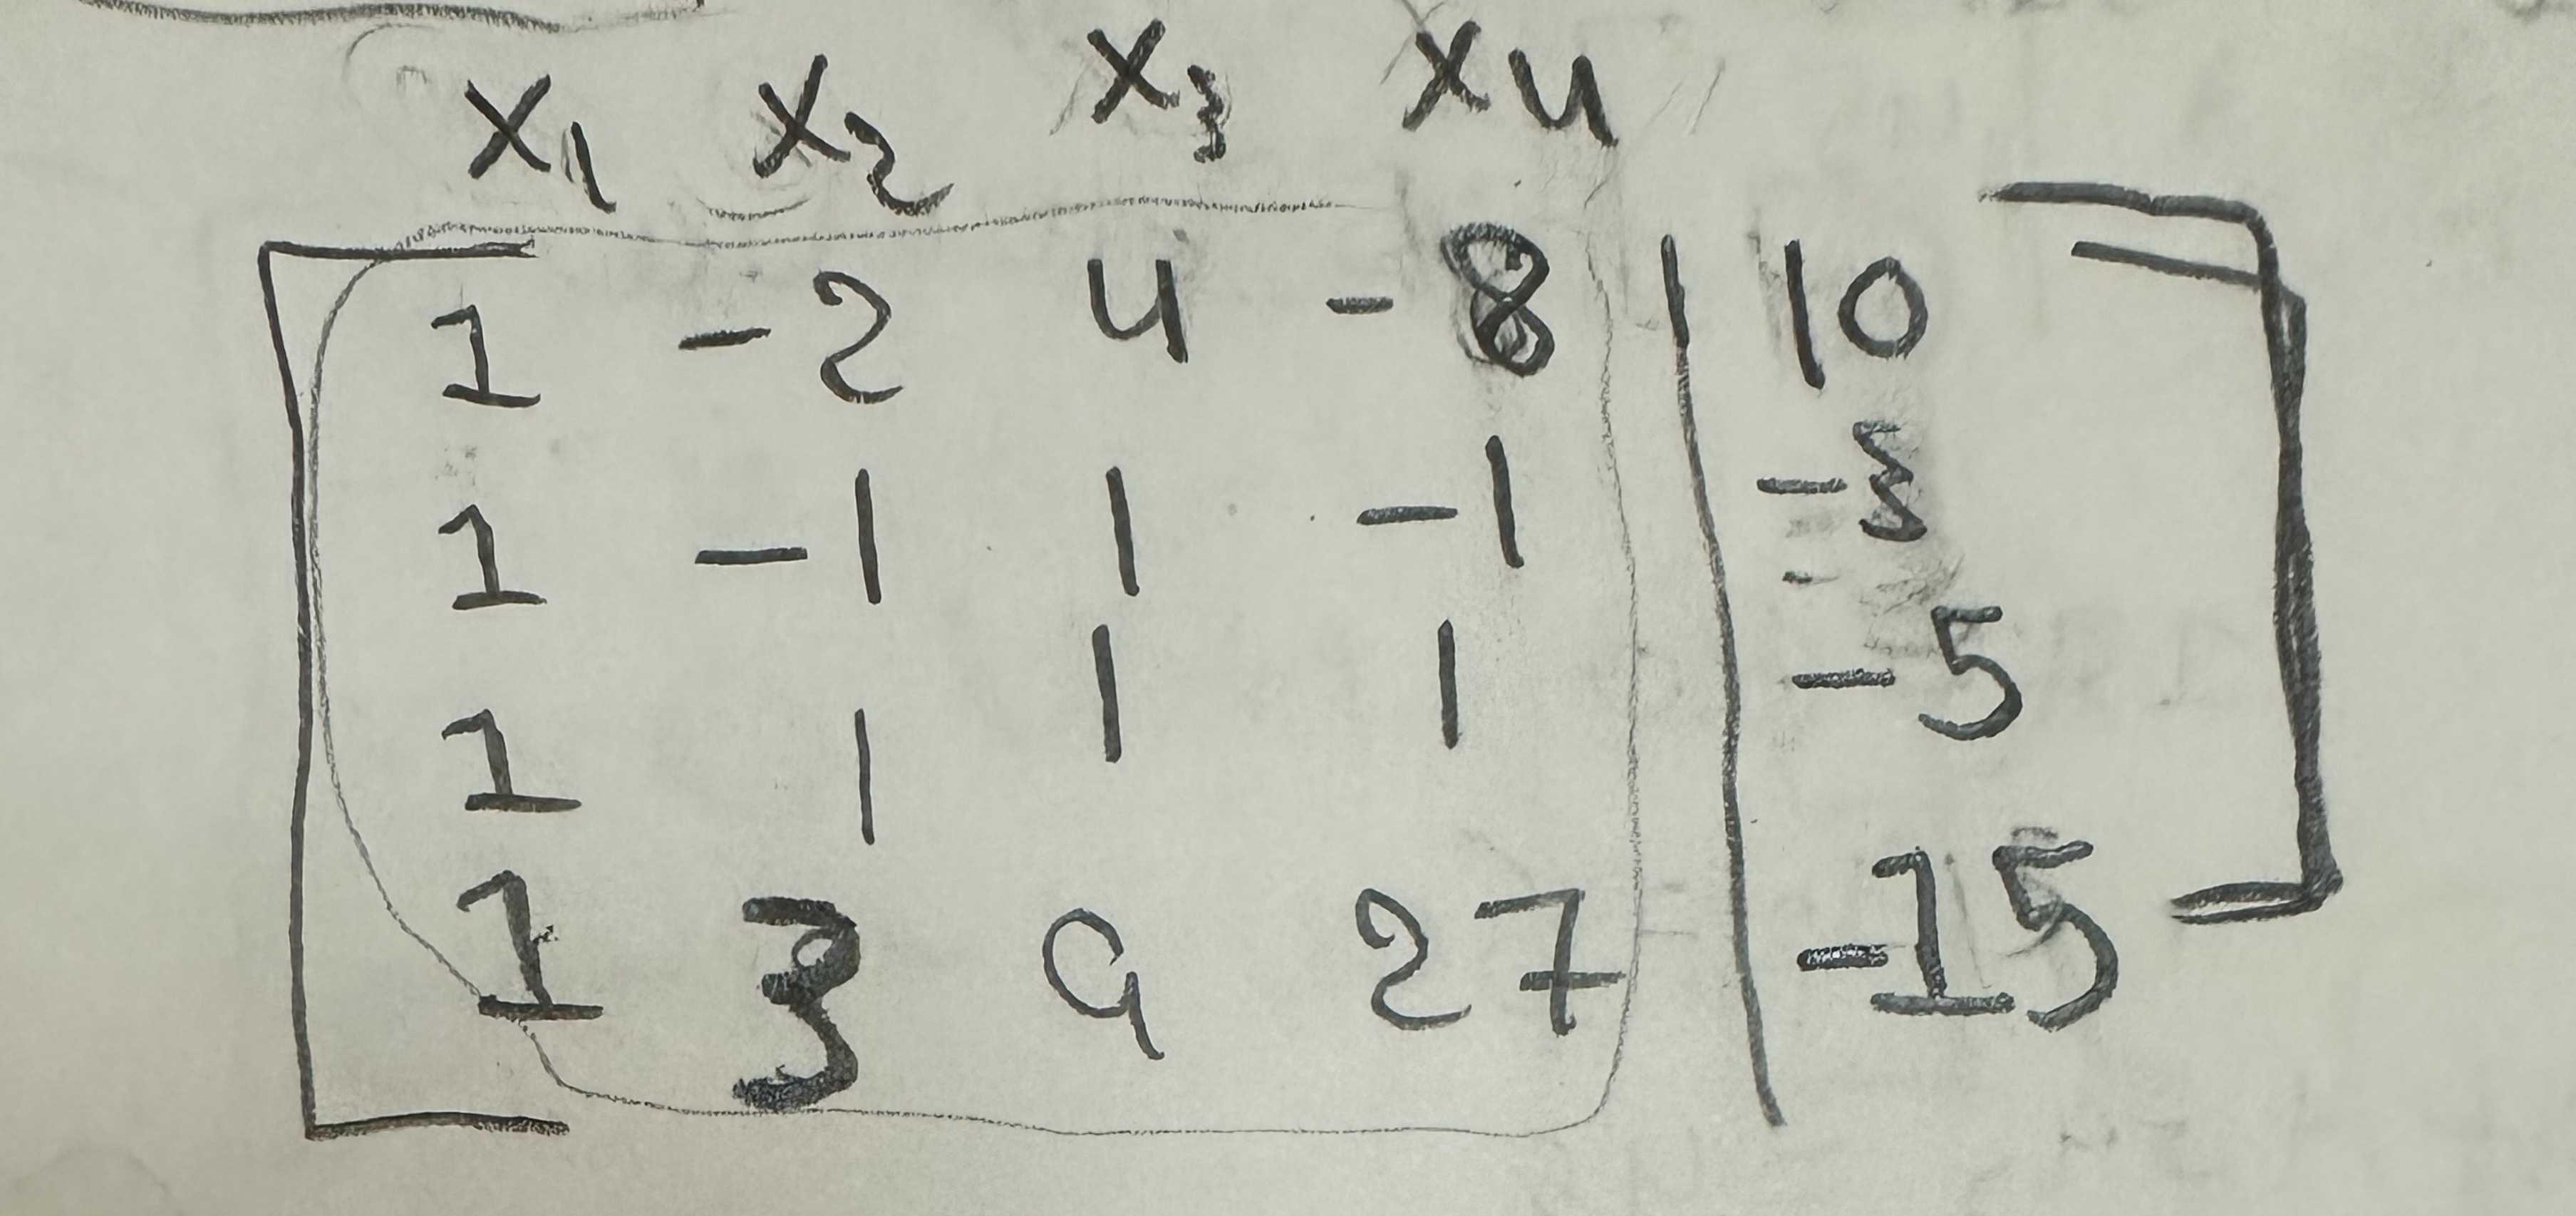 x₁ x₂ x₃ x₄
1 -2 4 -8 | 10
1 -1 1 -1 | -3
1 1 1 1 | -5
1 3 9 27 | -15